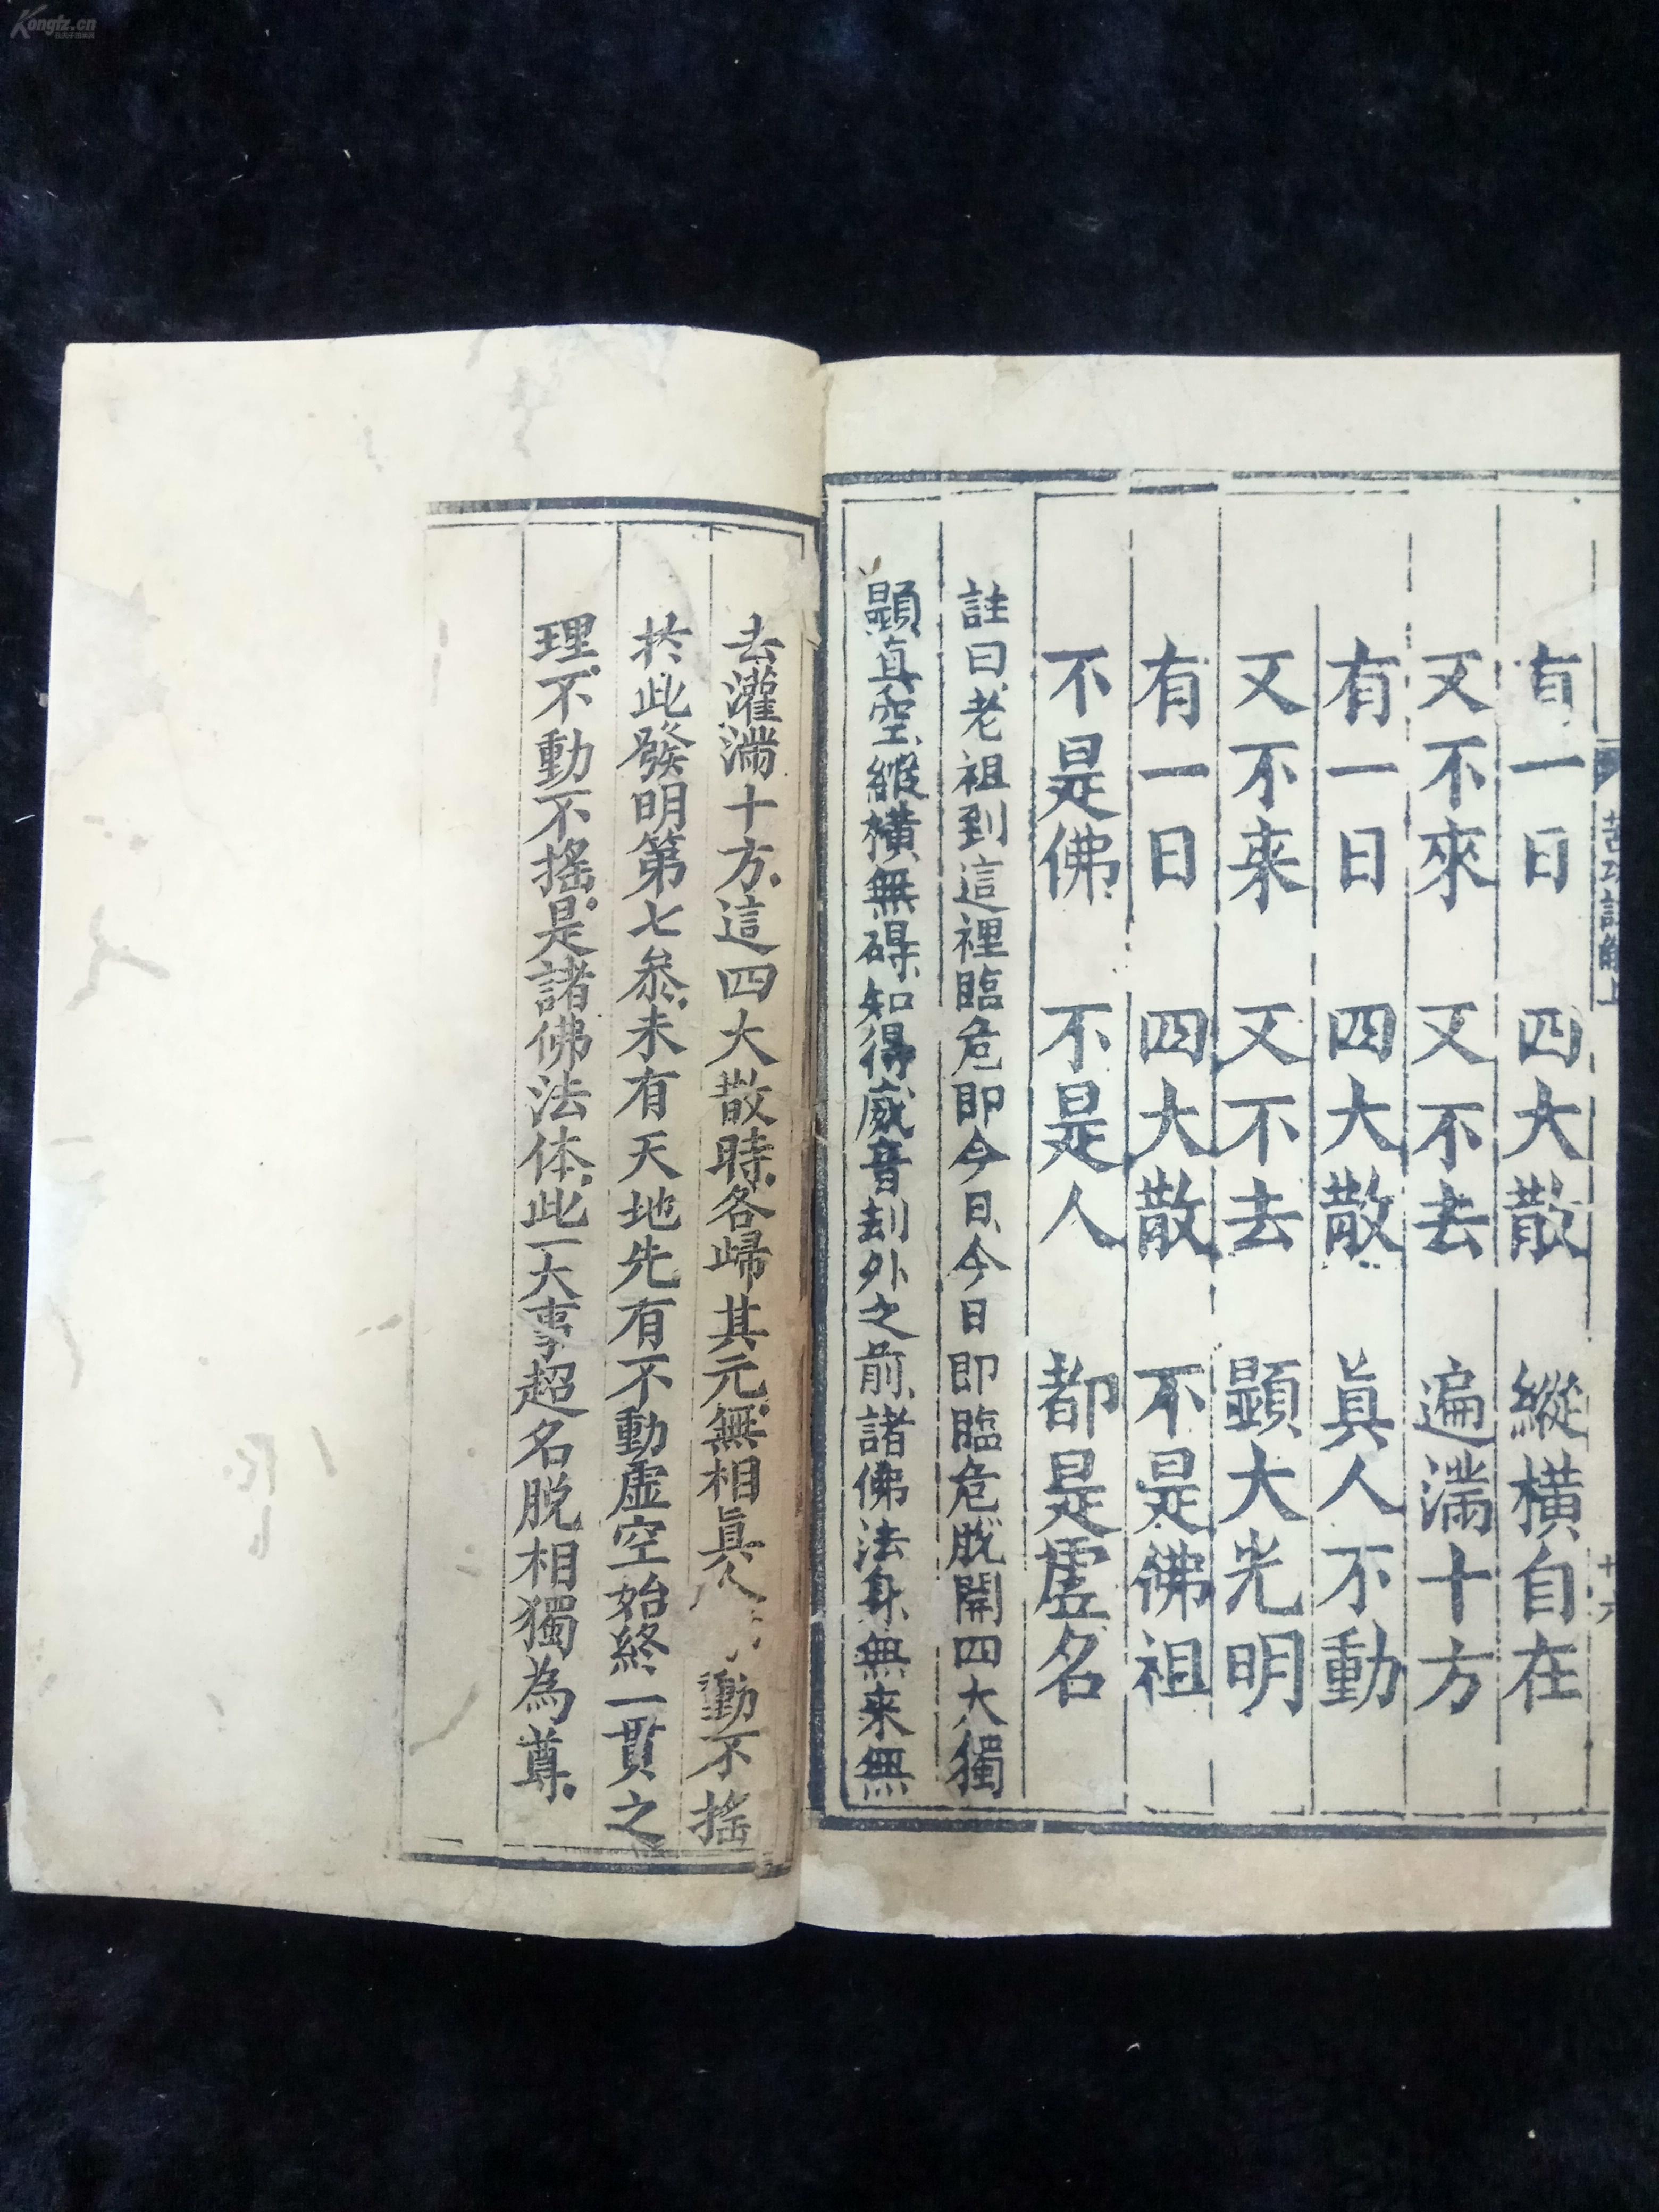 Kongfz.cn
苦功註解上
十六
有一日 四大散 縱橫自在
又不來 又不去 遍滿十方
有一日 四大散 眞人不動
又不来 又不去 顯大光明
有一日 四大散 不是佛祖
不是佛 不是人 都是虛名
註曰老祖到這裡臨危即今日今日即臨危脫開四大獨
顯真空縱橫無碍知得威音刦外之前諸佛法身無来無
去灌滿十方這四大散時各歸其元無相眞人動不搖
於此發明第七叅未有天地先有不動虛空始終一貫之
理不動不搖是諸佛法体此一大事超名脫相獨為尊